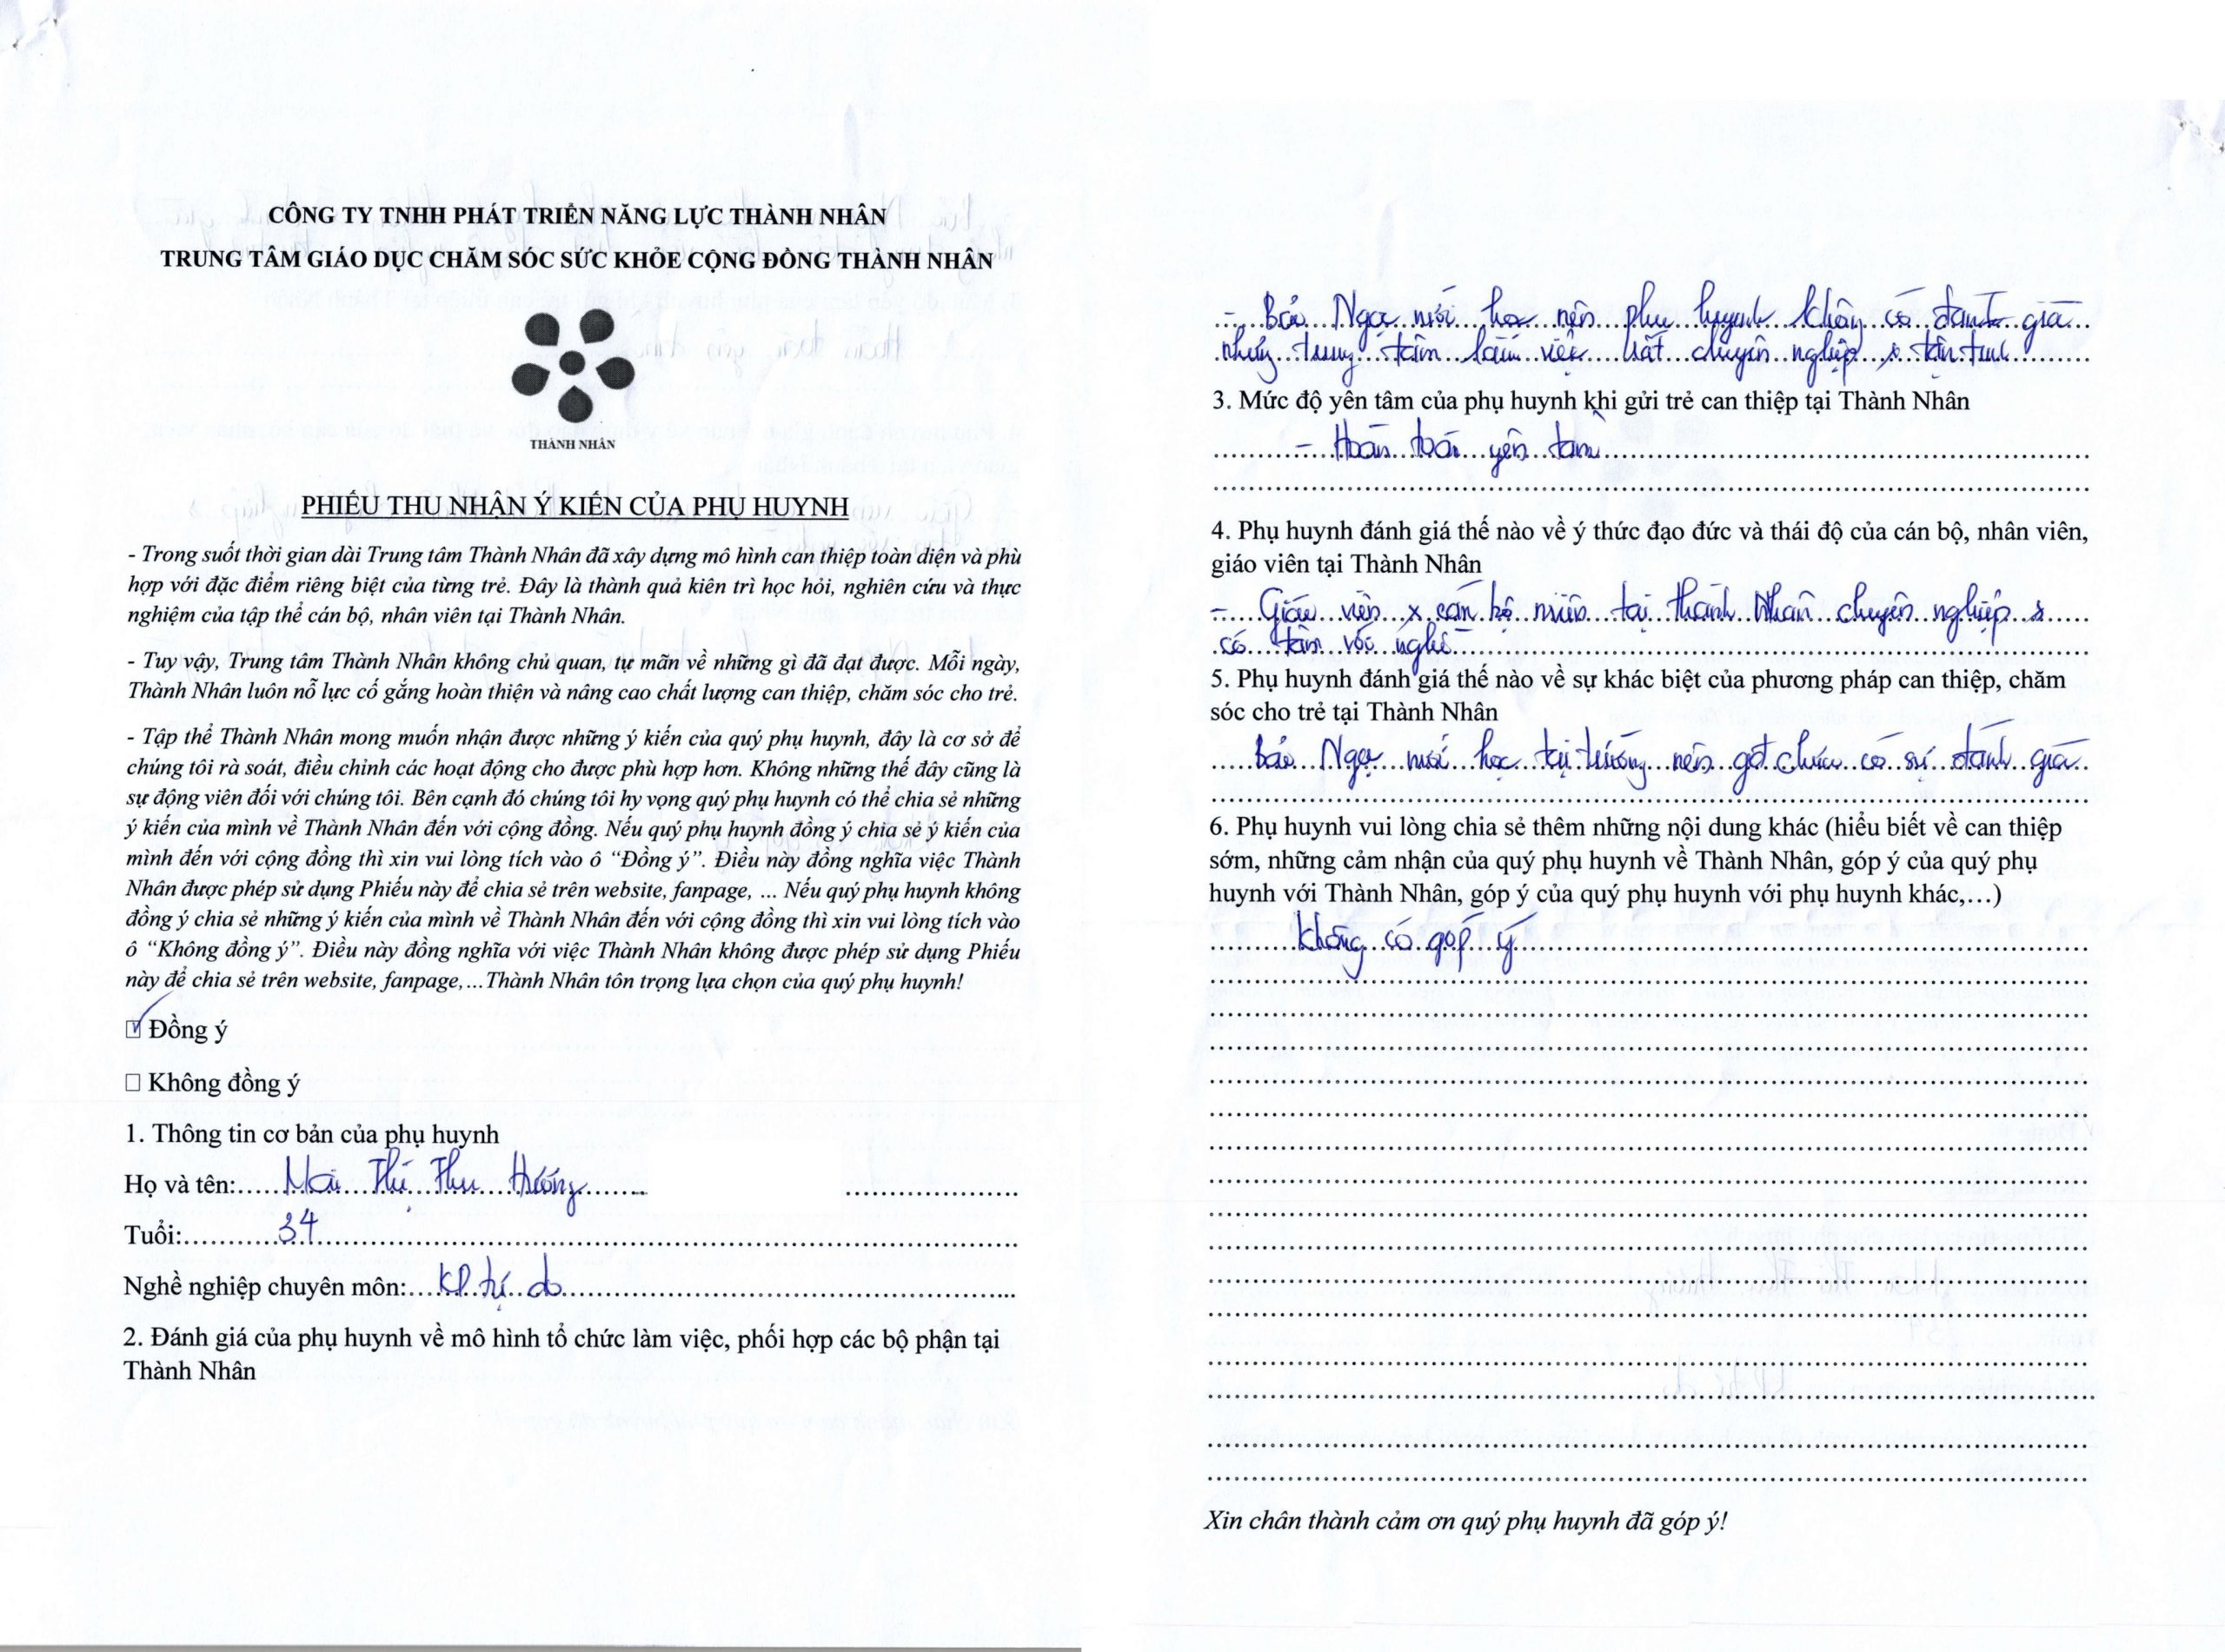 CÔNG TY TNHH PHÁT TRIỂN NĂNG LỰC THÀNH NHÂN
TRUNG TÂM GIÁO DỤC CHĂM SÓC SỨC KHỎE CỘNG ĐỒNG THÀNH NHÂN
THÀNH NHÂN
PHIẾU THU NHẬN Ý KIẾN CỦA PHỤ HUYNH
- Trong suốt thời gian dài Trung tâm Thành Nhân đã xây dựng mô hình can thiệp toàn diện và phù
hợp với đặc điểm riêng biệt của từng trẻ. Đây là thành quả kiên trì học hỏi, nghiên cứu và thực
nghiệm của tập thể cán bộ, nhân viên tại Thành Nhân.
- Tuy vậy, Trung tâm Thành Nhân không chủ quan, tự mãn về những gì đã đạt được. Mỗi ngày,
Thành Nhân luôn nỗ lực cố gắng hoàn thiện và nâng cao chất lượng can thiệp, chăm sóc cho trẻ.
- Tập thể Thành Nhân mong muốn nhận được những ý kiến của quý phụ huynh, đây là cơ sở để
chúng tôi rà soát, điều chỉnh các hoạt động cho được phù hợp hơn. Không những thế đây cũng là
sự động viên đối với chúng tôi. Bên cạnh đó chúng tôi hy vọng quý phụ huynh có thể chia sẻ những
ý kiến của mình về Thành Nhân đến với cộng đồng. Nếu quý phụ huynh đồng ý chia sẻ ý kiến của
mình đến với cộng đồng thì xin vui lòng tích vào ô “Đồng ý”. Điều này đồng nghĩa việc Thành
Nhân được phép sử dụng Phiếu này để chia sẻ trên website, fanpage, ... Nếu quý phụ huynh không
đồng ý chia sẻ những ý kiến của mình về Thành Nhân đến với cộng đồng thì xin vui lòng tích vào
ô “Không đồng ý”. Điều này đồng nghĩa với việc Thành Nhân không được phép sử dụng Phiếu
này để chia sẻ trên website, fanpage,...Thành Nhân tôn trọng lựa chọn của quý phụ huynh!
☑ Đồng ý
☐ Không đồng ý
1. Thông tin cơ bản của phụ huynh
Họ và tên: Mai Thị Thu Hường
Tuổi: 34
Nghề nghiệp chuyên môn: KD tự do
2. Đánh giá của phụ huynh về mô hình tổ chức làm việc, phối hợp các bộ phận tại
Thành Nhân
- Bảo Ngọc mới học nên phụ huynh không có đánh giá
nhưng trung tâm làm việc rất chuyên nghiệp & tận tình
3. Mức độ yên tâm của phụ huynh khi gửi trẻ can thiệp tại Thành Nhân
- Hoàn toàn yên tâm
4. Phụ huynh đánh giá thế nào về ý thức đạo đức và thái độ của cán bộ, nhân viên,
giáo viên tại Thành Nhân
- Giáo viên & cán bộ tại Thành Nhân chuyên nghiệp &
có tâm với nghề
5. Phụ huynh đánh giá thế nào về sự khác biệt của phương pháp can thiệp, chăm
sóc cho trẻ tại Thành Nhân
Bảo Ngọc mới học tại trường nên chưa có sự đánh giá
6. Phụ huynh vui lòng chia sẻ thêm những nội dung khác (hiểu biết về can thiệp
sớm, những cảm nhận của quý phụ huynh về Thành Nhân, góp ý của quý phụ
huynh với Thành Nhân, góp ý của quý phụ huynh với phụ huynh khác,…)
Không có góp ý
Xin chân thành cảm ơn quý phụ huynh đã góp ý!